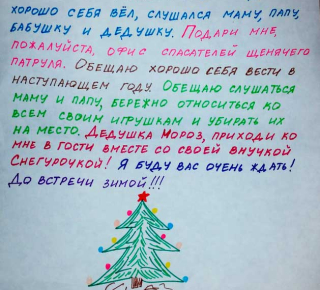 хорошо себя вёл, слушался маму, папу,
бабушку и дедушку. Подари мне,
пожалуйста, офис спасателей щенячего
патруля. Обещаю хорошо себя вести в
наступающем году. Обещаю слушаться
маму и папу, бережно относиться ко
всем своим игрушкам и убирать их
на место. Дедушка Мороз, приходи ко
мне в гости вместе со своей внучкой
Снегурочкой! Я буду вас очень ждать!
До встречи зимой!!!